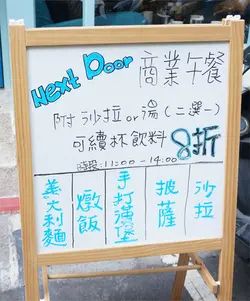 Next Door 商業午餐
附沙拉or湯(二選一)
可續杯飲料 8折
時段:11:00-14:00
義大利麵
燉飯
手打漢堡
披薩
沙拉